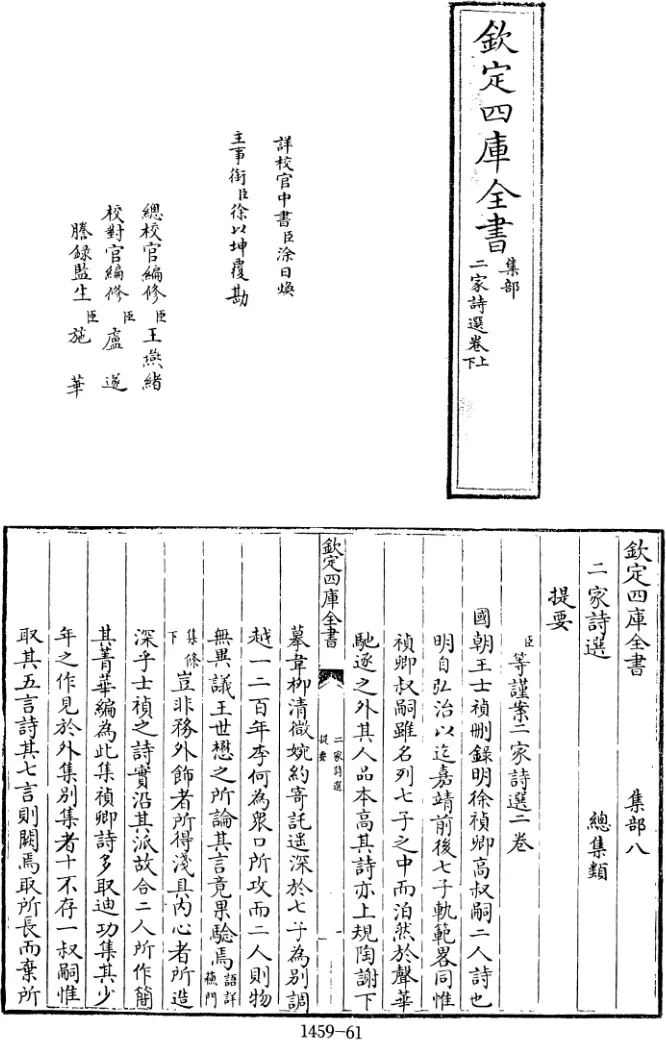 欽定四庫全書
集部
二家詩選卷上下
詳校官中書臣涂日煥
主事銜臣徐以坤覆勘
總校官編修臣王燕緒
校對官編修臣盧遂
謄錄監生臣施華
欽定四庫全書 集部八
二家詩選 總集類
提要
臣等謹案二家詩選二卷
國朝王士禎刪錄明徐禎卿高叔嗣二人詩也
明自弘治以迄嘉靖前後七子軌範畧同惟
禎卿叔嗣雖名列七子之中而泊然於聲華
馳逐之外其人品本高其詩亦上規陶謝下
欽定四庫全書 二家詩選 提要 一
摹韋柳清微婉約寄託遥深於七子為別調
越一二百年李何為衆口所攻而二人則物
無異議王世懋之所論其言竟果驗焉語詳蘓門
集條下豈非務外飾者所得淺具內心者所造
深乎士禎之詩實沿其派故合二人所作簡
其菁華編為此集禎卿詩多取迪功集其少
年之作見於外集別集者十不存一叔嗣惟
取其五言詩其七言則闕焉取所長而棄所
1459-61